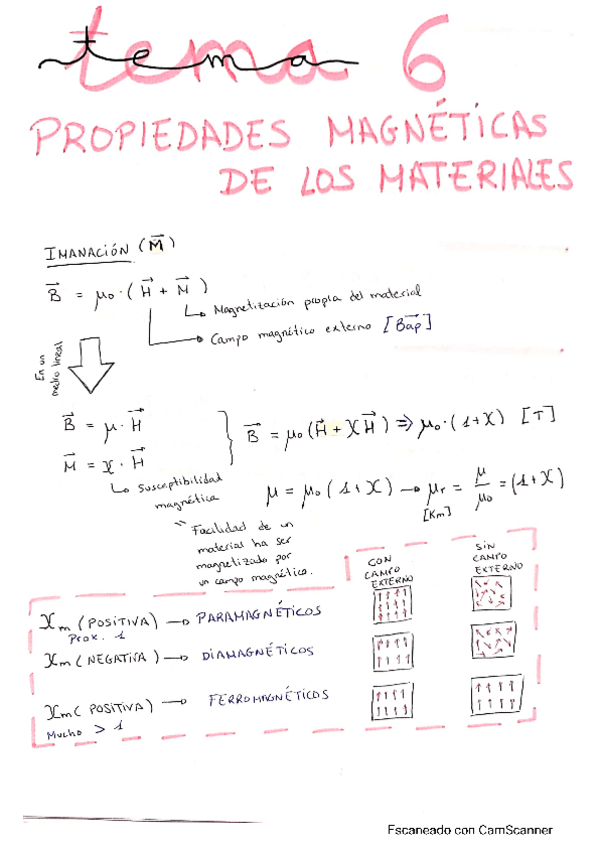 tema 6
PROPIEDADES MAGNÉTICAS
DE LOS MATERIALES
IMANACIÓN (M⃗)
B⃗ = μ₀·(H⃗ + M⃗)
Magnetización propia del material
Campo magnético externo [B⃗ap]
En un
medio lineal
B⃗ = μ·H⃗
M⃗ = χ·H⃗
B⃗ = μ₀(H⃗ + χH⃗) ⇒ μ₀·(1+χ) [T]
Susceptibilidad
magnética
μ = μ₀(1+χ) → μr = μ/μ₀ = (1+χ)
[Km]
" Facilidad de un
material ha ser
magnetizado por
un campo magnético.
CON
CAMPO
EXTERNO
SIN
CAMPO
EXTERNO
χm (POSITIVA) → PARAMAGNÉTICOS
Prox. 1
χm (NEGATIVA) → DIAMAGNÉTICOS
χm (POSITIVA) → FERROMAGNÉTICOS
Mucho > 1
Escaneado con CamScanner